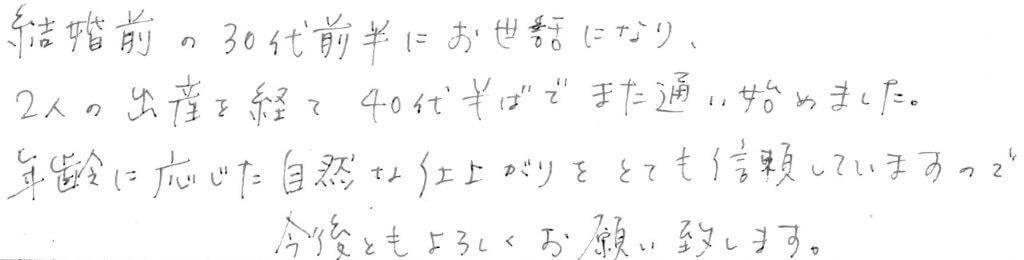 結婚前の30代前半にお世話になり、
2人の出産を経て40代半ばでまた通い始めました。
年齢に応じた自然な仕上がりをとても信頼していますので
今後ともよろしくお願い致します。